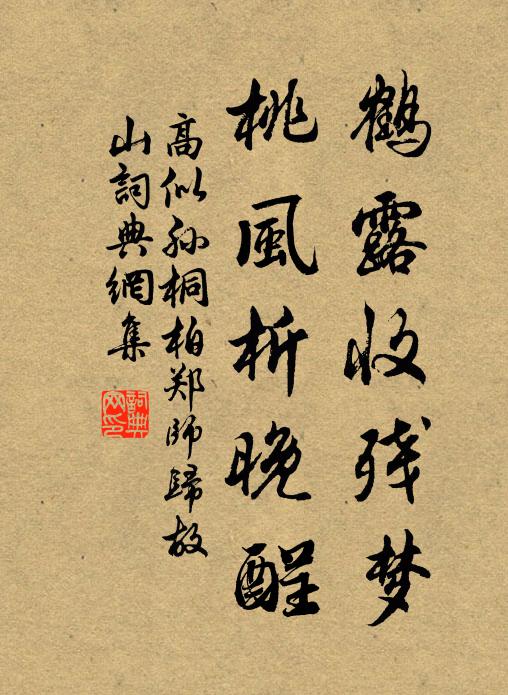 鹤露收残梦
桃风析晚酲
高似孙桐柏郑师歸故
山詞典網集
詞典网印